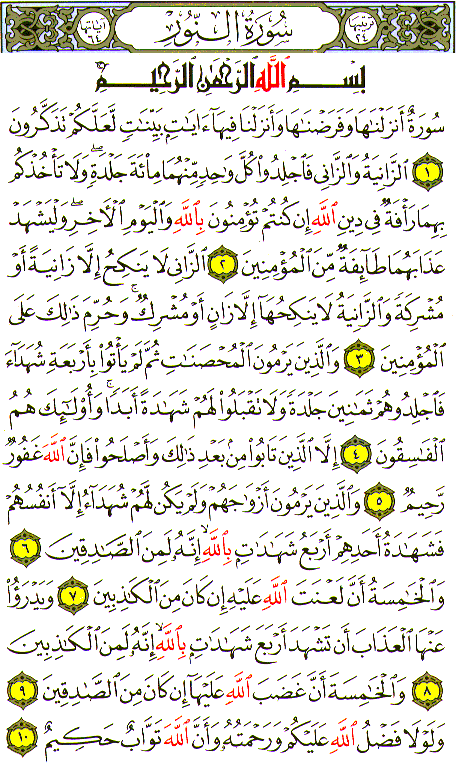 سُورَةُ النُّورِ
بِسْمِ اللَّهِ الرَّحْمَٰنِ الرَّحِيمِ
سُورَةٌ أَنزَلْنَاهَا وَفَرَضْنَاهَا وَأَنزَلْنَا فِيهَا ءَايَاتٍ بَيِّنَاتٍ لَّعَلَّكُمْ تَذَكَّرُونَ
١ الزَّانِيَةُ وَالزَّانِي فَاجْلِدُوا كُلَّ وَاحِدٍ مِّنْهُمَا مِائَةَ جَلْدَةٍ ۖ وَلَا تَأْخُذْكُم
بِهِمَا رَأْفَةٌ فِي دِينِ اللَّهِ إِن كُنتُمْ تُؤْمِنُونَ بِاللَّهِ وَالْيَوْمِ الْآخِرِ ۖ وَلْيَشْهَدْ
عَذَابَهُمَا طَائِفَةٌ مِّنَ الْمُؤْمِنِينَ ٢ الزَّانِي لَا يَنكِحُ إِلَّا زَانِيَةً أَوْ
مُشْرِكَةً وَالزَّانِيَةُ لَا يَنكِحُهَا إِلَّا زَانٍ أَوْ مُشْرِكٌ ۚ وَحُرِّمَ ذَٰلِكَ عَلَى
الْمُؤْمِنِينَ ٣ وَالَّذِينَ يَرْمُونَ الْمُحْصَنَاتِ ثُمَّ لَمْ يَأْتُوا بِأَرْبَعَةِ شُهَدَاءَ
فَاجْلِدُوهُمْ ثَمَانِينَ جَلْدَةً وَلَا تَقْبَلُوا لَهُمْ شَهَادَةً أَبَدًا ۚ وَأُولَٰئِكَ هُمُ
الْفَاسِقُونَ ٤ إِلَّا الَّذِينَ تَابُوا مِن بَعْدِ ذَٰلِكَ وَأَصْلَحُوا فَإِنَّ اللَّهَ غَفُورٌ
رَّحِيمٌ ٥ وَالَّذِينَ يَرْمُونَ أَزْوَاجَهُمْ وَلَمْ يَكُن لَّهُمْ شُهَدَاءُ إِلَّا أَنفُسُهُمْ
فَشَهَادَةُ أَحَدِهِمْ أَرْبَعُ شَهَادَاتٍ بِاللَّهِ ۙ إِنَّهُ لَمِنَ الصَّادِقِينَ ٦
وَالْخَامِسَةُ أَنَّ لَعْنَتَ اللَّهِ عَلَيْهِ إِن كَانَ مِنَ الْكَاذِبِينَ ٧ وَيَدْرَؤُا
عَنْهَا الْعَذَابَ أَن تَشْهَدَ أَرْبَعَ شَهَادَاتٍ بِاللَّهِ ۙ إِنَّهُ لَمِنَ الْكَاذِبِينَ
٨ وَالْخَامِسَةَ أَنَّ غَضَبَ اللَّهِ عَلَيْهَا إِن كَانَ مِنَ الصَّادِقِينَ ٩
وَلَوْلَا فَضْلُ اللَّهِ عَلَيْكُمْ وَرَحْمَتُهُ وَأَنَّ اللَّهَ تَوَّابٌ حَكِيمٌ ١٠